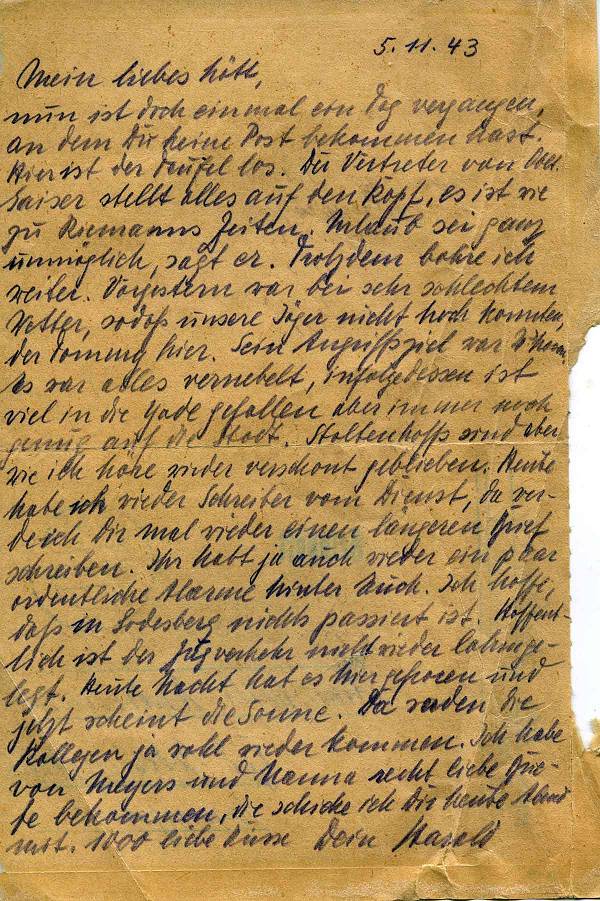 5.11.43
Mein liebes Hött,
nun ist doch einmal ein Tag vergangen,
an dem Du keine Post bekommen hast.
Hier ist der Teufel los. Der Vertreter von Ober
Saiser stellt alles auf den Kopf, es ist wie
zu Riemanns Zeiten. Urlaub sei ganz
unmöglich, sagt er. Trotzdem bohre ich
weiter. Vorgestern war bei sehr schlechtem
Wetter, sodaß unsere Jäger nicht hoch konnten,
der Tommy hier. Sein Angriffsziel war
Es war alles vernebelt, infolgedessen ist
viel in die Jade gefallen aber immer noch
genug auf die Stadt. Stoltenhoffs sind aber
wie ich höre wieder verschont geblieben. Heute
habe ich wieder Schreiber vom Dienst, da wer-
de ich Dir mal wieder einen längeren Brief
schreiben. Ihr habt ja auch wieder ein paar
ordentliche Alarme hinter Euch. Ich hoffe,
daß in Godesberg nichts passiert ist. Hoffent-
lich ist der Zugverkehr nicht wieder lahmge-
legt. Heute Nacht hat es hier gefroren und
jetzt scheint die Sonne. Da werden die
Kollegen ja wohl wieder kommen. Ich habe
von Meyers und Nanna recht liebe Brie-
fe bekommen, die schicke ich Dir heute Abend
mit. 1000 liebe Küsse Dein Harald